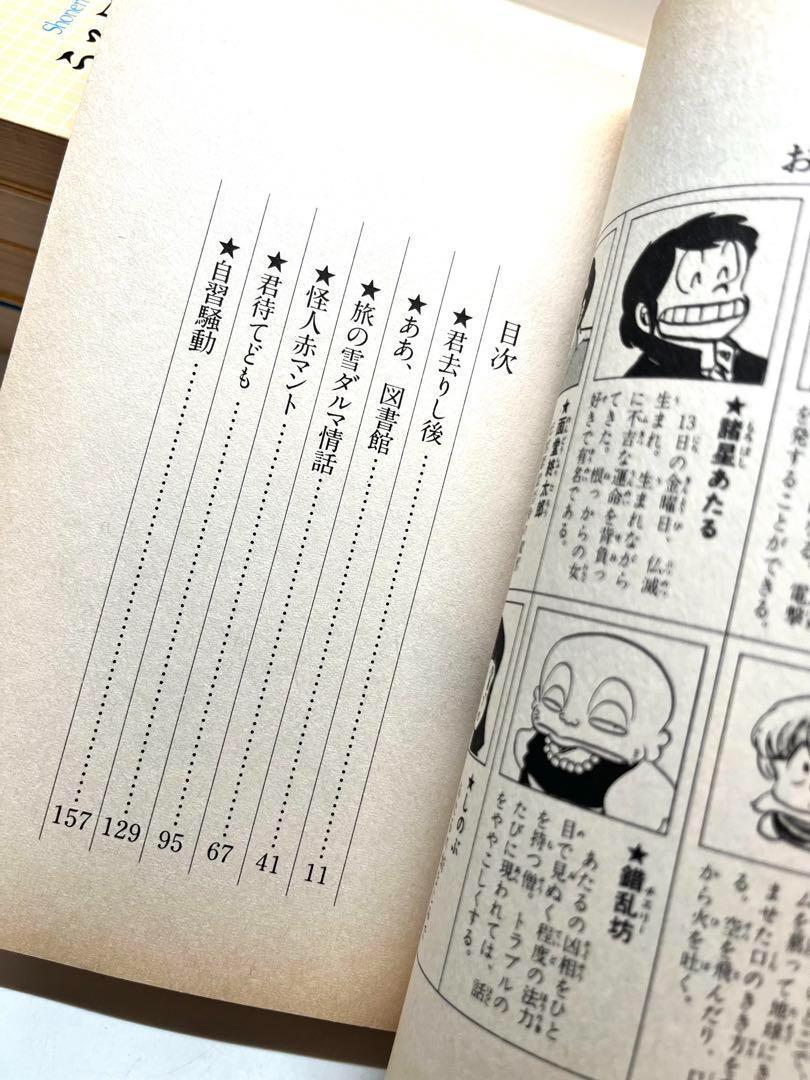 Shonen
目次
★君去りし後 11
★ああ、図書館 41
★旅の雪ダルマ情話 67
★怪人赤マント 95
★君待てども 129
★自習騒動 157
お
電撃
発することができる。
★諸星あたる
13日の金曜日、仏滅
生まれ。生まれながら
に不吉な運命を背負っ
てきた。根っからの女
好きで有名である。
太郎
から火を吐く。
る。空を飛んだり、
ませた口のきき方を
★錯乱坊
チェリー
あたるの凶相をひと
目で見ぬく程度の法力
を持つ僧。トラブルの
たびに現われては、話
をややこしくする。
★しのぶ